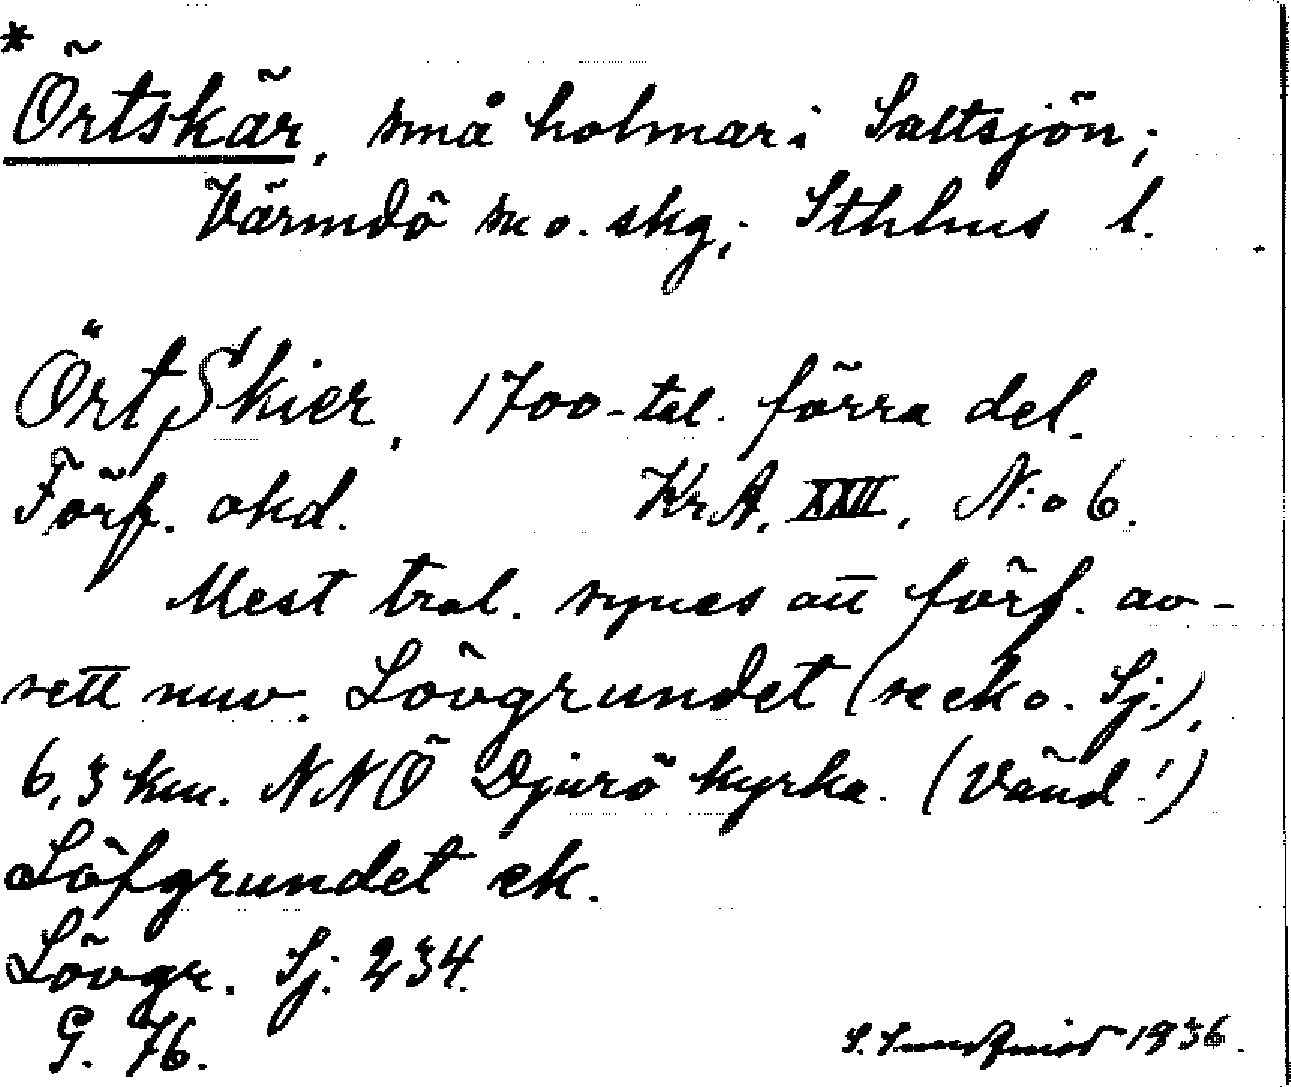 *
Örtskär, små holmar i Saltsjön;
Värmdö sn o. skg; Sthlms l.
Ört Skier, 1700-tal. förra del.
Förf. okd. KrA. XXII, N:o 6.
Mest trol. synes att förf. av-
sett nuv. Lövgrundet (se ek o. Sj.),
6,3 km. NNÖ Djurö kyrka. (Vänd!)
Löfgrundet ek.
Lövgr. Sj. 234.
G. 76.
S. Sundqvist 1936.